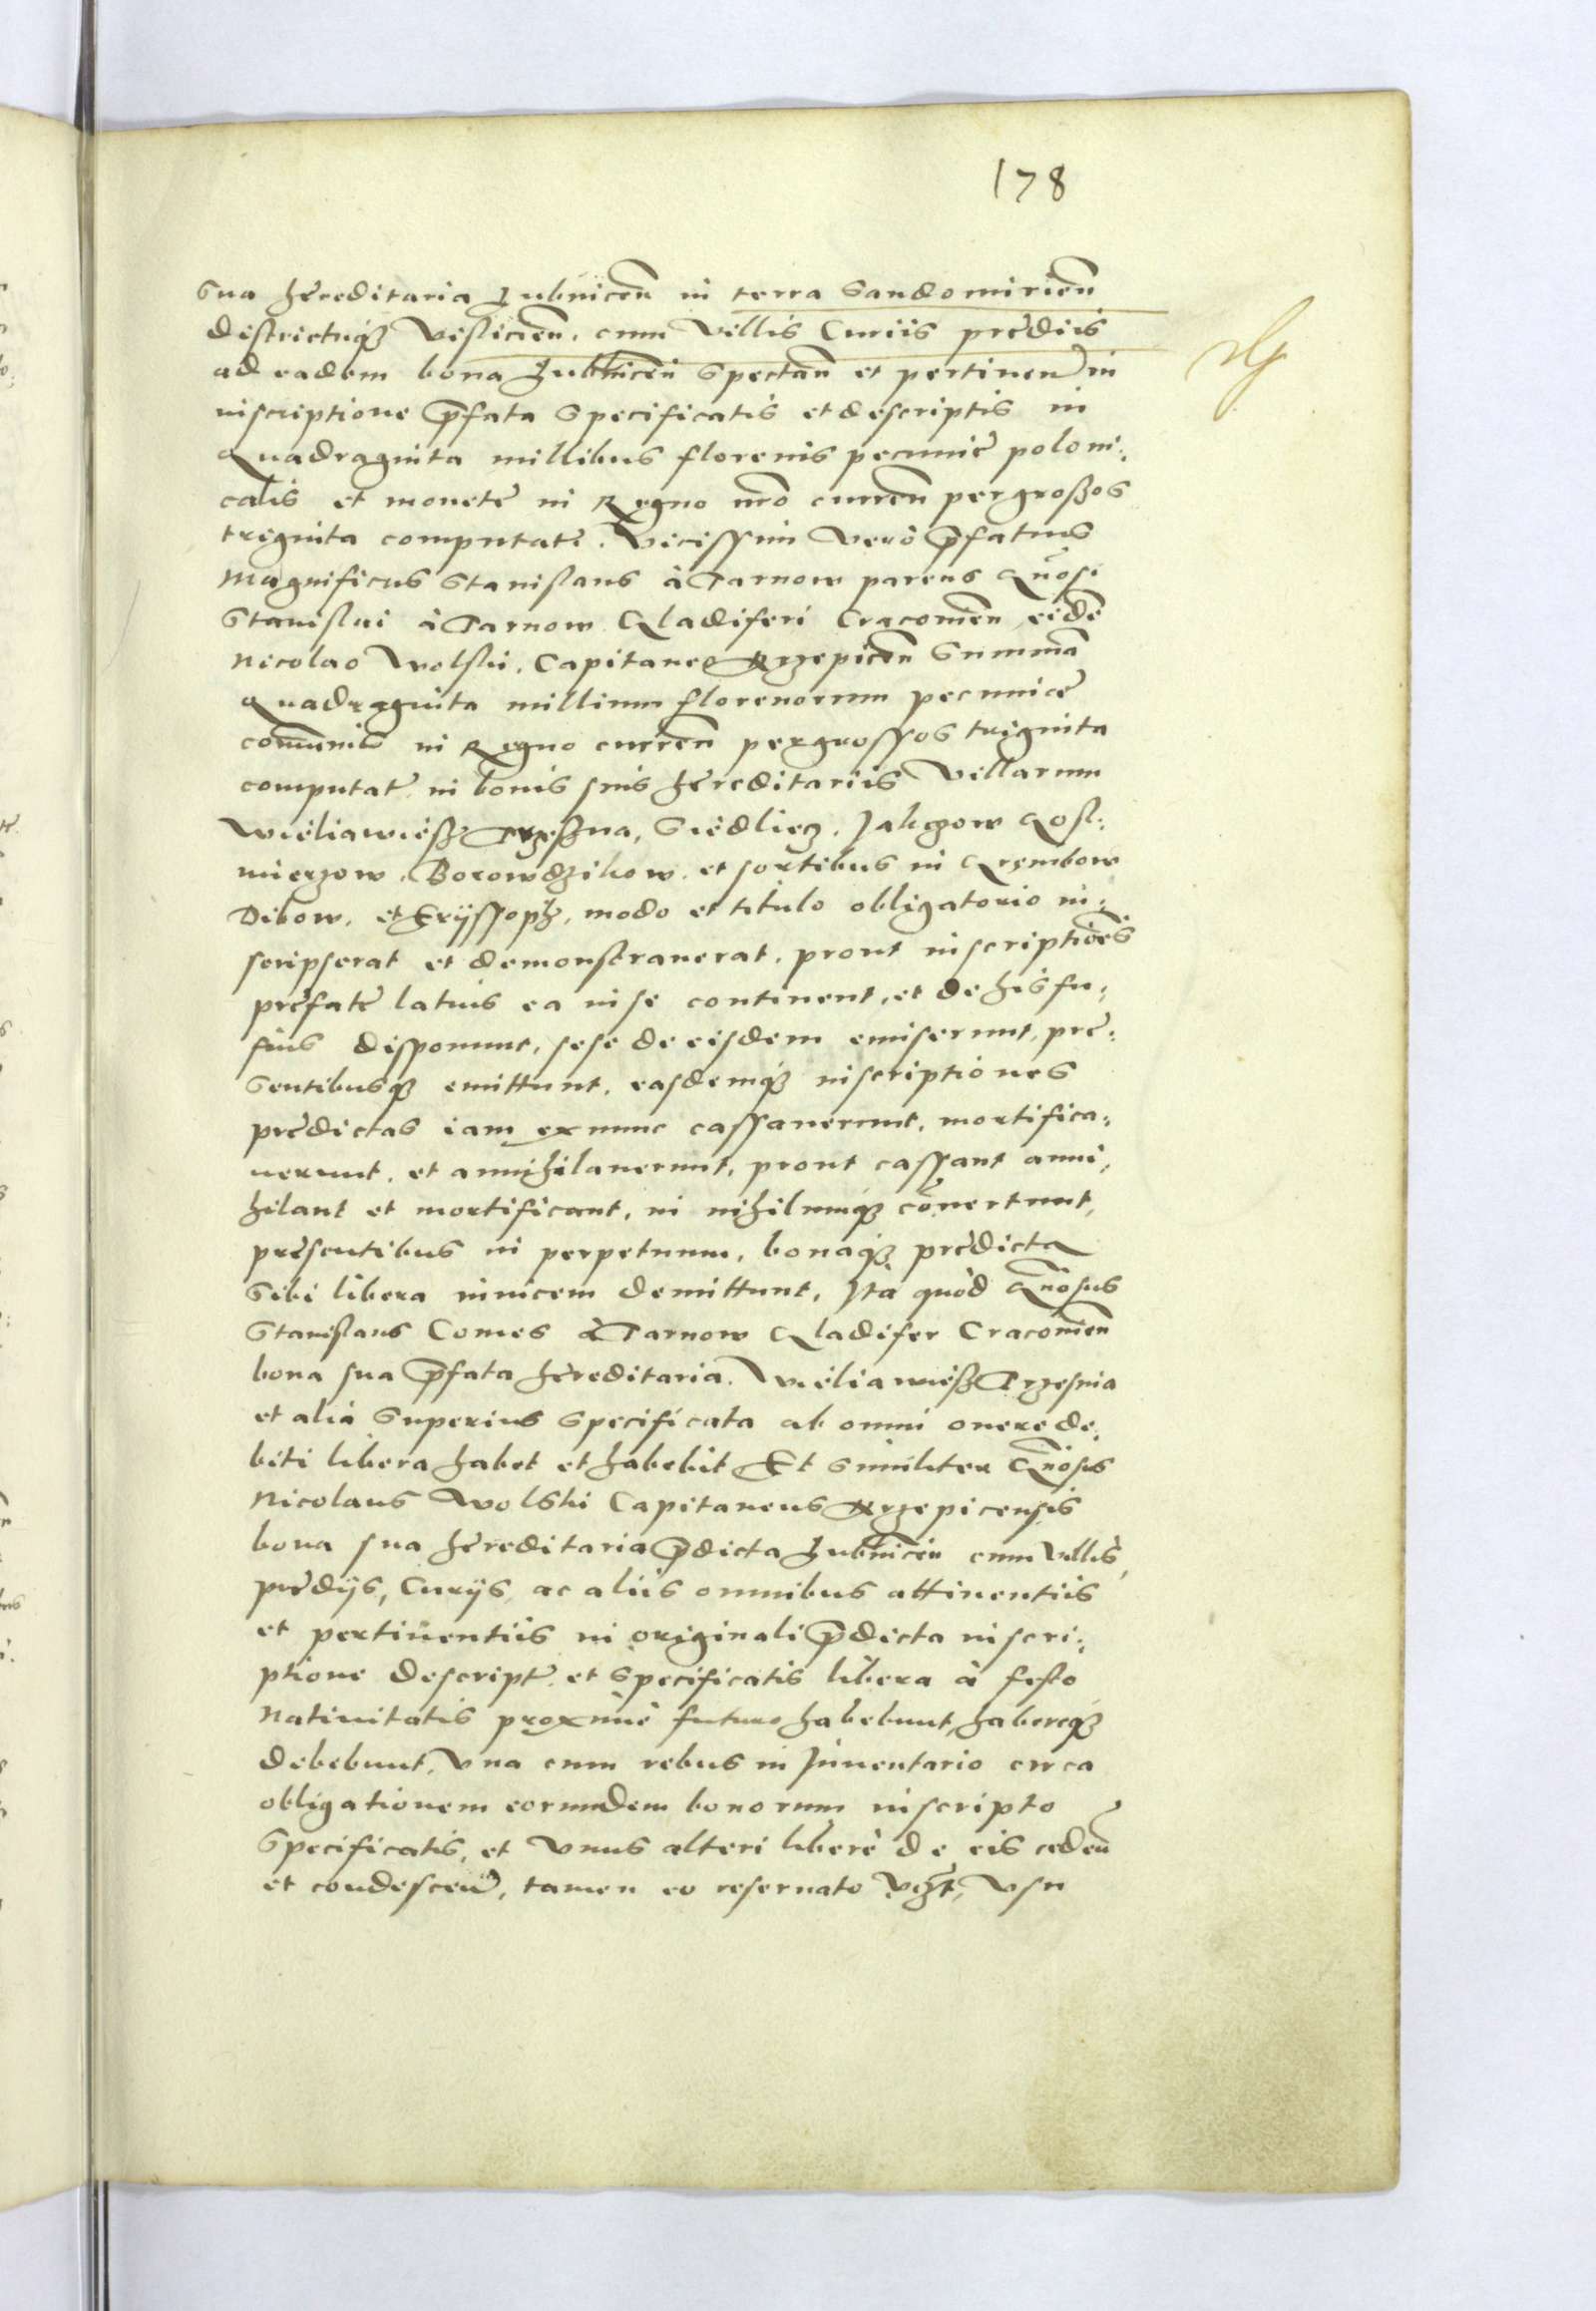 178
sua hereditaria Zubnicen̄ in terra Sandomirien̄
districtuq̃ȝ Visliciēn. cum Villis Curiis prediis
ad eadem bona Zubnicen̄ spectan̄ et pertinen̄ in
inscriptione p̄fata specificatis et descriptis in
Quadraginta millibus florenis pecunię poloni:
calis et monetę in Regno nr̄o curren̄ per grossos
triginta computatę. Vicissim verò p̄fatus
Magnificus Stanislaus à Tarnow parens
Stanislai à Tarnow Gladiferi Cracovien̄ eidē
Nicolao Wolski. Capitaneo Krzepicen̄ Summā
Quadraginta millium florenorum pecunię
com̄unis in Regno curren̄ per grossos triginta
computatę in bonis suis hereditariis Villarum
Wieliawiesß Trzesna, Siedliecz. Jakczow Gosl:
mierzow. Borowdzikow. et sortibus in Grembow
Dikow. et modo et titulo obligatorio in:
scripserat et demonstrauerat. prout inscriptiōes
prefatę latius ea in se continent, et de his fu:
sius disponunt, sese de eisdem emiserunt, prę:
sentibusq̃ȝ emittunt. easdemq̃ȝ inscriptiones
prędictas iam ex nunc cassauerunt, mortifica:
uerunt. et annihilauerunt, prout cassant anni,
hilant et mortificant, in nihilumq̃ȝ cōuertunt,
presentibus in perpetuum, bonaq̃ȝ predicta
sibi libera inuicem demittunt, Ita quòd Gn̄osus
Stanislaus Comes à Tarnow Gladifer Cracovien̄
bona sua p̄fata hereditaria. Wieliawiesß Trzesnia
et alia superius specificata ab omni onere de,
biti libera habet et habebit Et similiter Gn̄osus
Nicolaus Wolski Capitaneus Krzepicensis
bona sua hereditaria p̄dicta Zubnicen̄ cum Villis,
predijs, Curijs, ac aliis omnibus attinentiis
et pertinentiis in originali p̄dicta inscri:
ptione descriptę et specificatis libera à festo
Natiuitatis proximè futuro habebunt, habereq̃ȝ
debebunt, Vna cum rebus in Inuentario circa
obligationem eorundem bonorum inscripto
specificatis, et Vnus alteri liberè de eis ceden̄
et condescen̄, tamen eo reseruato Vsu